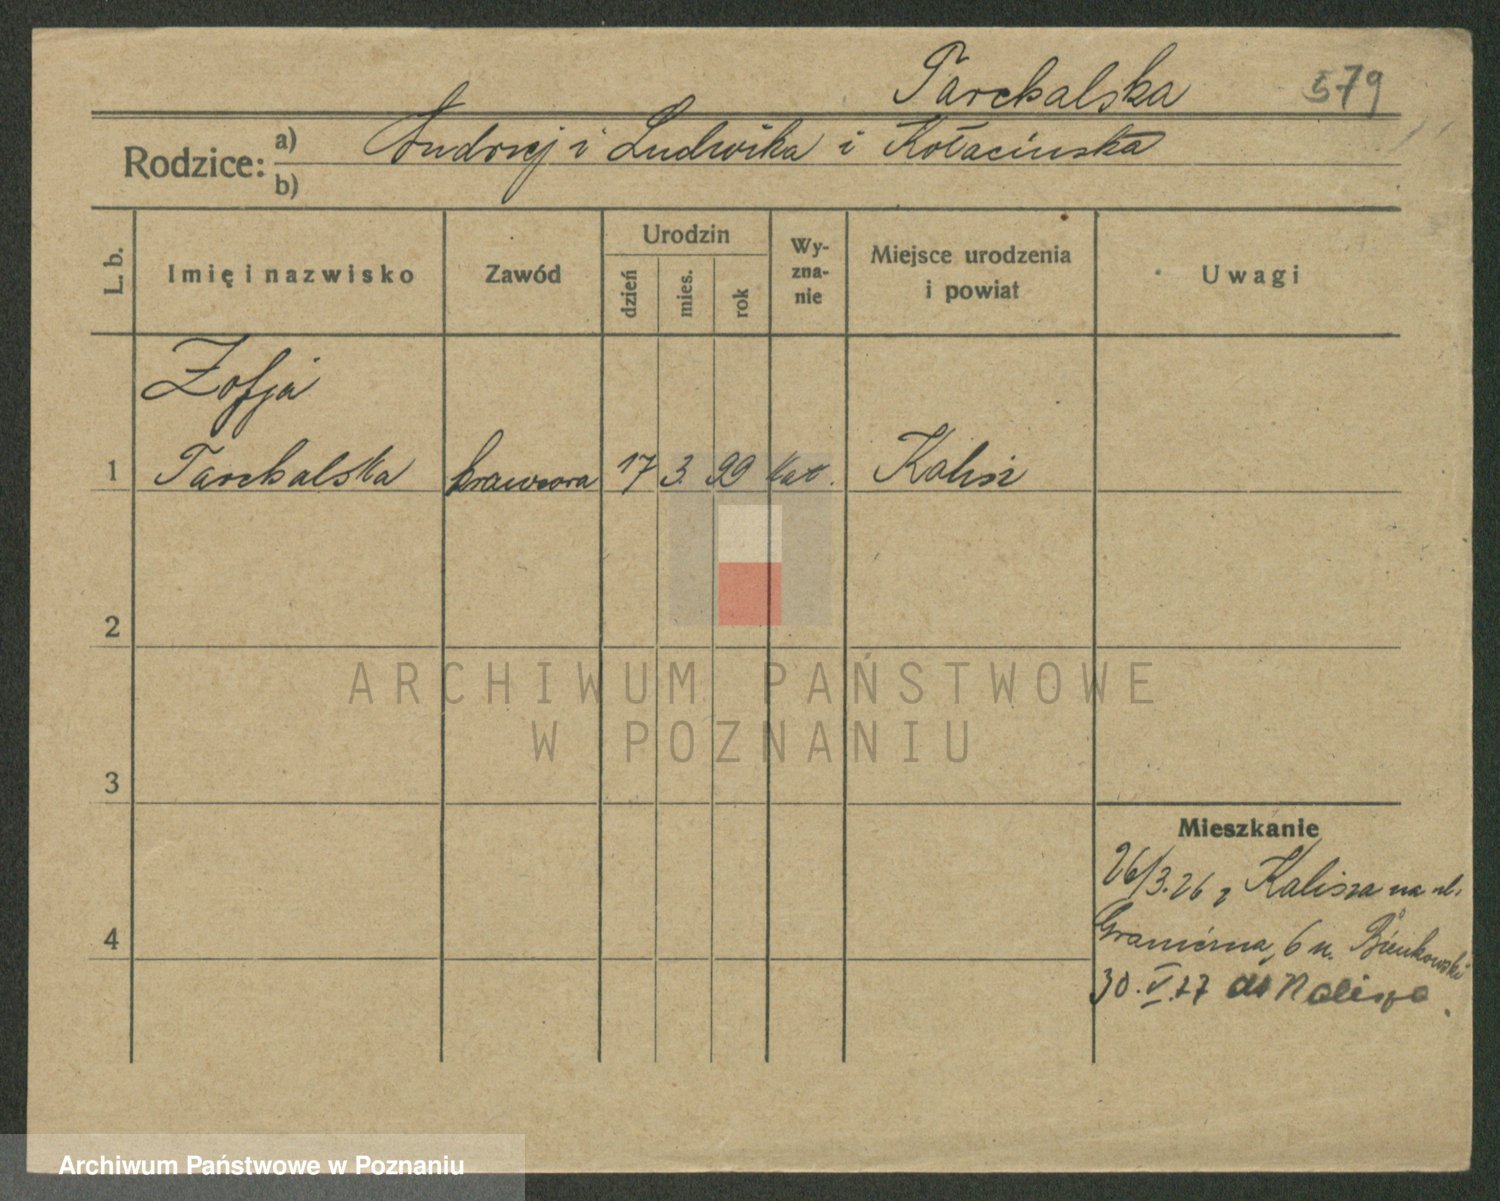 Tarchalska 579
Rodzice: a) Andrzej i Ludwika i Kołacińska
b)
L. b. Imię i nazwisko Zawód Urodzin dzień mies. rok Wy-zna-nie Miejsce urodzenia i powiat Uwagi
Zofja
1 Tarchalska krawcowa 17 3. 99 kat. Kalisz
2
ARCHIWUM PAŃSTWOWE
W POZNANIU
3
Mieszkanie
26/3.26 z Kalisza na ul.
4 Graniczna, 6 u. Bieńkowski
30.V.27 do Kalisza.
Archiwum Państwowe w Poznaniu